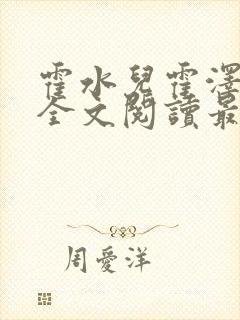 霍水兒霍澤
全文閱讀最
周愛洋